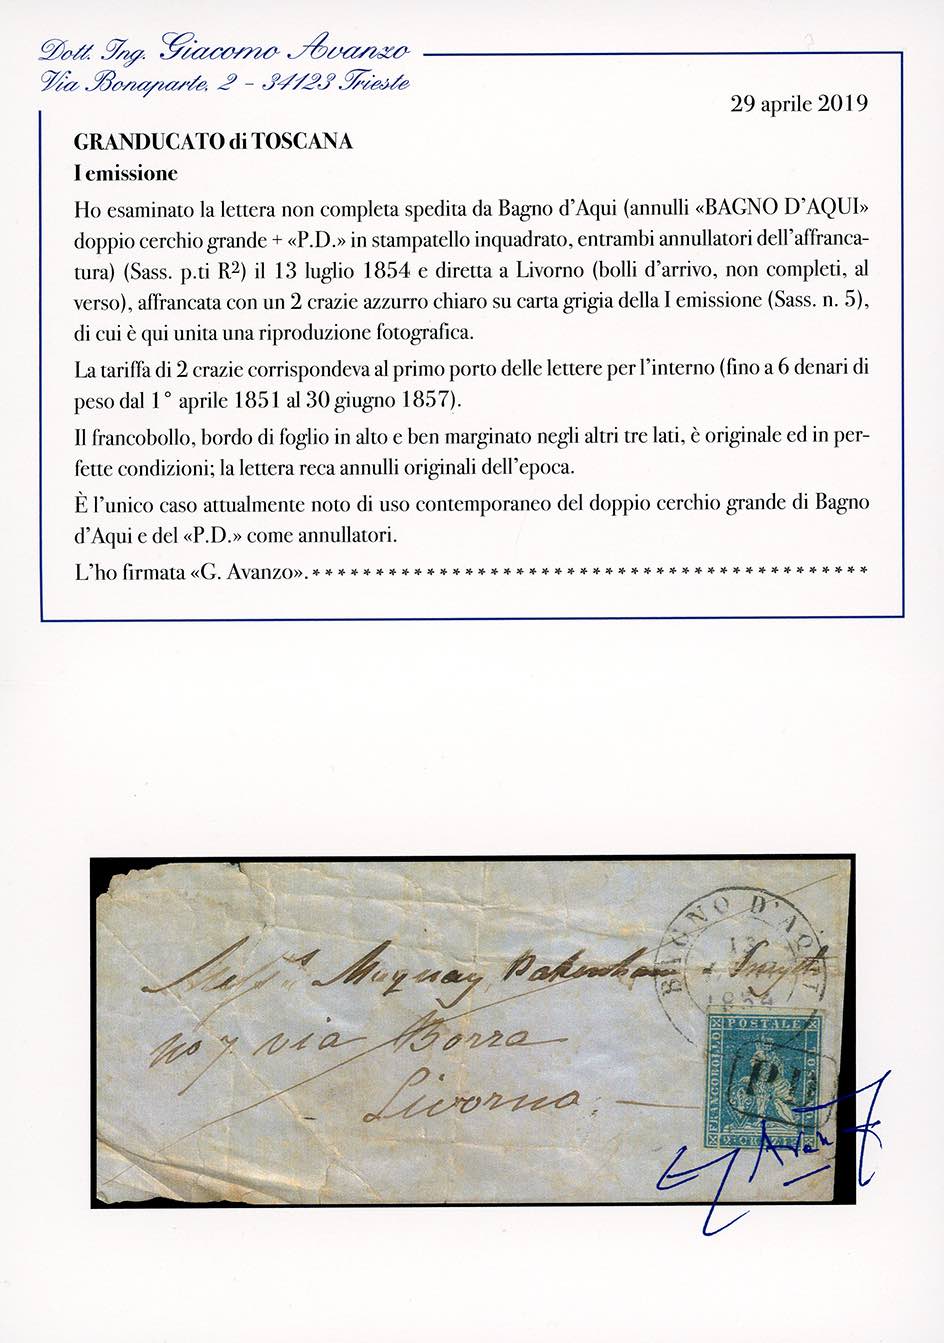 Dott. Ing. Giacomo Avanzo
Via Bonaparte, 2 – 34123 Trieste
29 aprile 2019
GRANDUCATO di TOSCANA
I emissione
Ho esaminato la lettera non completa spedita da Bagno d'Aqui (annulli «BAGNO D'AQUI»
doppio cerchio grande + «P.D.» in stampatello inquadrato, entrambi annullatori dell'affranca-
tura) (Sass. p.ti R²) il 13 luglio 1854 e diretta a Livorno (bolli d'arrivo, non completi, al
verso), affrancata con un 2 crazie azzurro chiaro su carta grigia della I emissione (Sass. n. 5),
di cui è qui unita una riproduzione fotografica.
La tariffa di 2 crazie corrispondeva al primo porto delle lettere per l'interno (fino a 6 denari di
peso dal 1° aprile 1851 al 30 giugno 1857).
Il francobollo, bordo di foglio in alto e ben marginato negli altri tre lati, è originale ed in per-
fette condizioni; la lettera reca annulli originali dell'epoca.
È l'unico caso attualmente noto di uso contemporaneo del doppio cerchio grande di Bagno
d'Aqui e del «P.D.» come annullatori.
L'ho firmata «G. Avanzo». * * * * * * * * * * * * * * * * * * * * * * * * * * * * * * * * * * * * * * * * * * * *
BAGNO D'AQUI
13
1854
Mess.rs Maquay Pakenham & Smyth
No 7 via Borra
Livorno
FRANCOBOLLO
POSTALE
TOSCANO
2 CRAZIE
PD